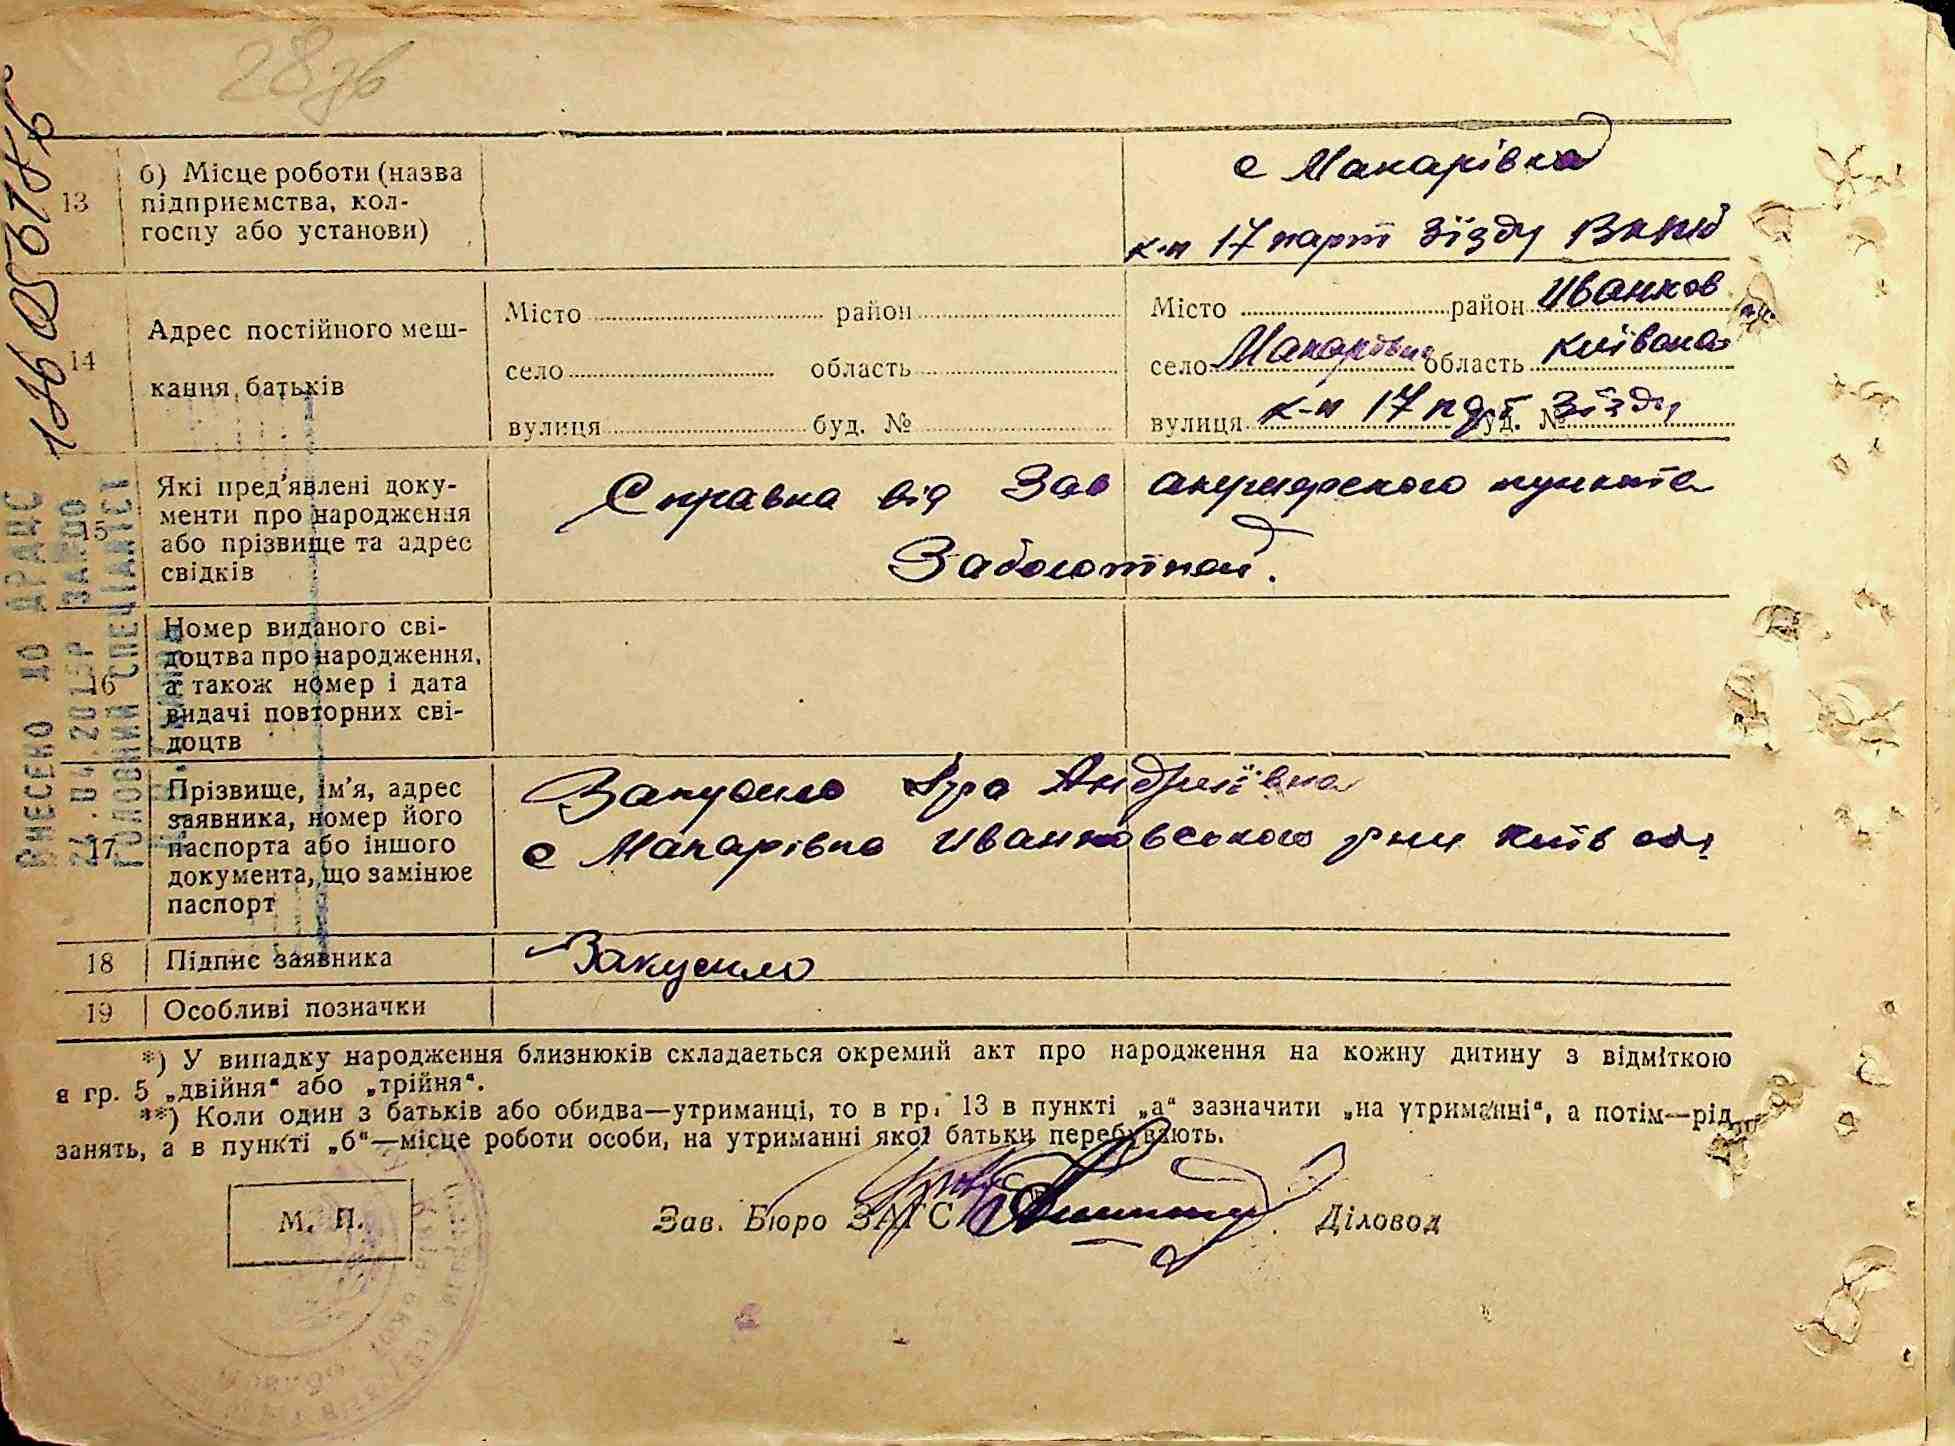 28 зв
13 б) Місце роботи (назва
підприємства, кол-
госпу або установи)
с Макарівка
к-п 17 парт зїзду ВКПб
14 Адрес постійного меш-
кання батьків
Місто район
село область
вулиця буд. №
Місто район Иванков
село Макарівка область Київська
вулиця к-п 17 парт зїзду буд. №
15 Які пред'явлені доку-
менти про народження
або прізвище та адрес
свідків
Справка від Зав акушерского пункта
Заболотной.
16 Номер виданого сві-
доцтва про народження,
а також номер і дата
видачі повторних сві-
доцтв
17 Прізвище, ім'я, адрес
заявника, номер його
паспорта або іншого
документа, що замінює
паспорт
Закусило Іра Андріївна
с Макарівка Иванковського р-ни Київ обл
18 Підпис заявника
Закусило
19 Особливі позначки
*) У випадку народження близнюків складається окремий акт про народження на кожну дитину з відміткою
в гр. 5 „двійня“ або „трійня“.
**) Коли один з батьків або обидва—утриманці, то в гр. 13 в пункті „а“ зазначити „на утриманні“, а потім—рід
занять, а в пункті „б“—місце роботи особи, на утриманні якої батьки перебувають.
М. П.
Зав. Бюро ЗАГС Діловод
ВНЕСЕНО ДО ДРАЦС
24.04.2019Р
ГОЛОВНИЙ СПЕЦІАЛІСТ